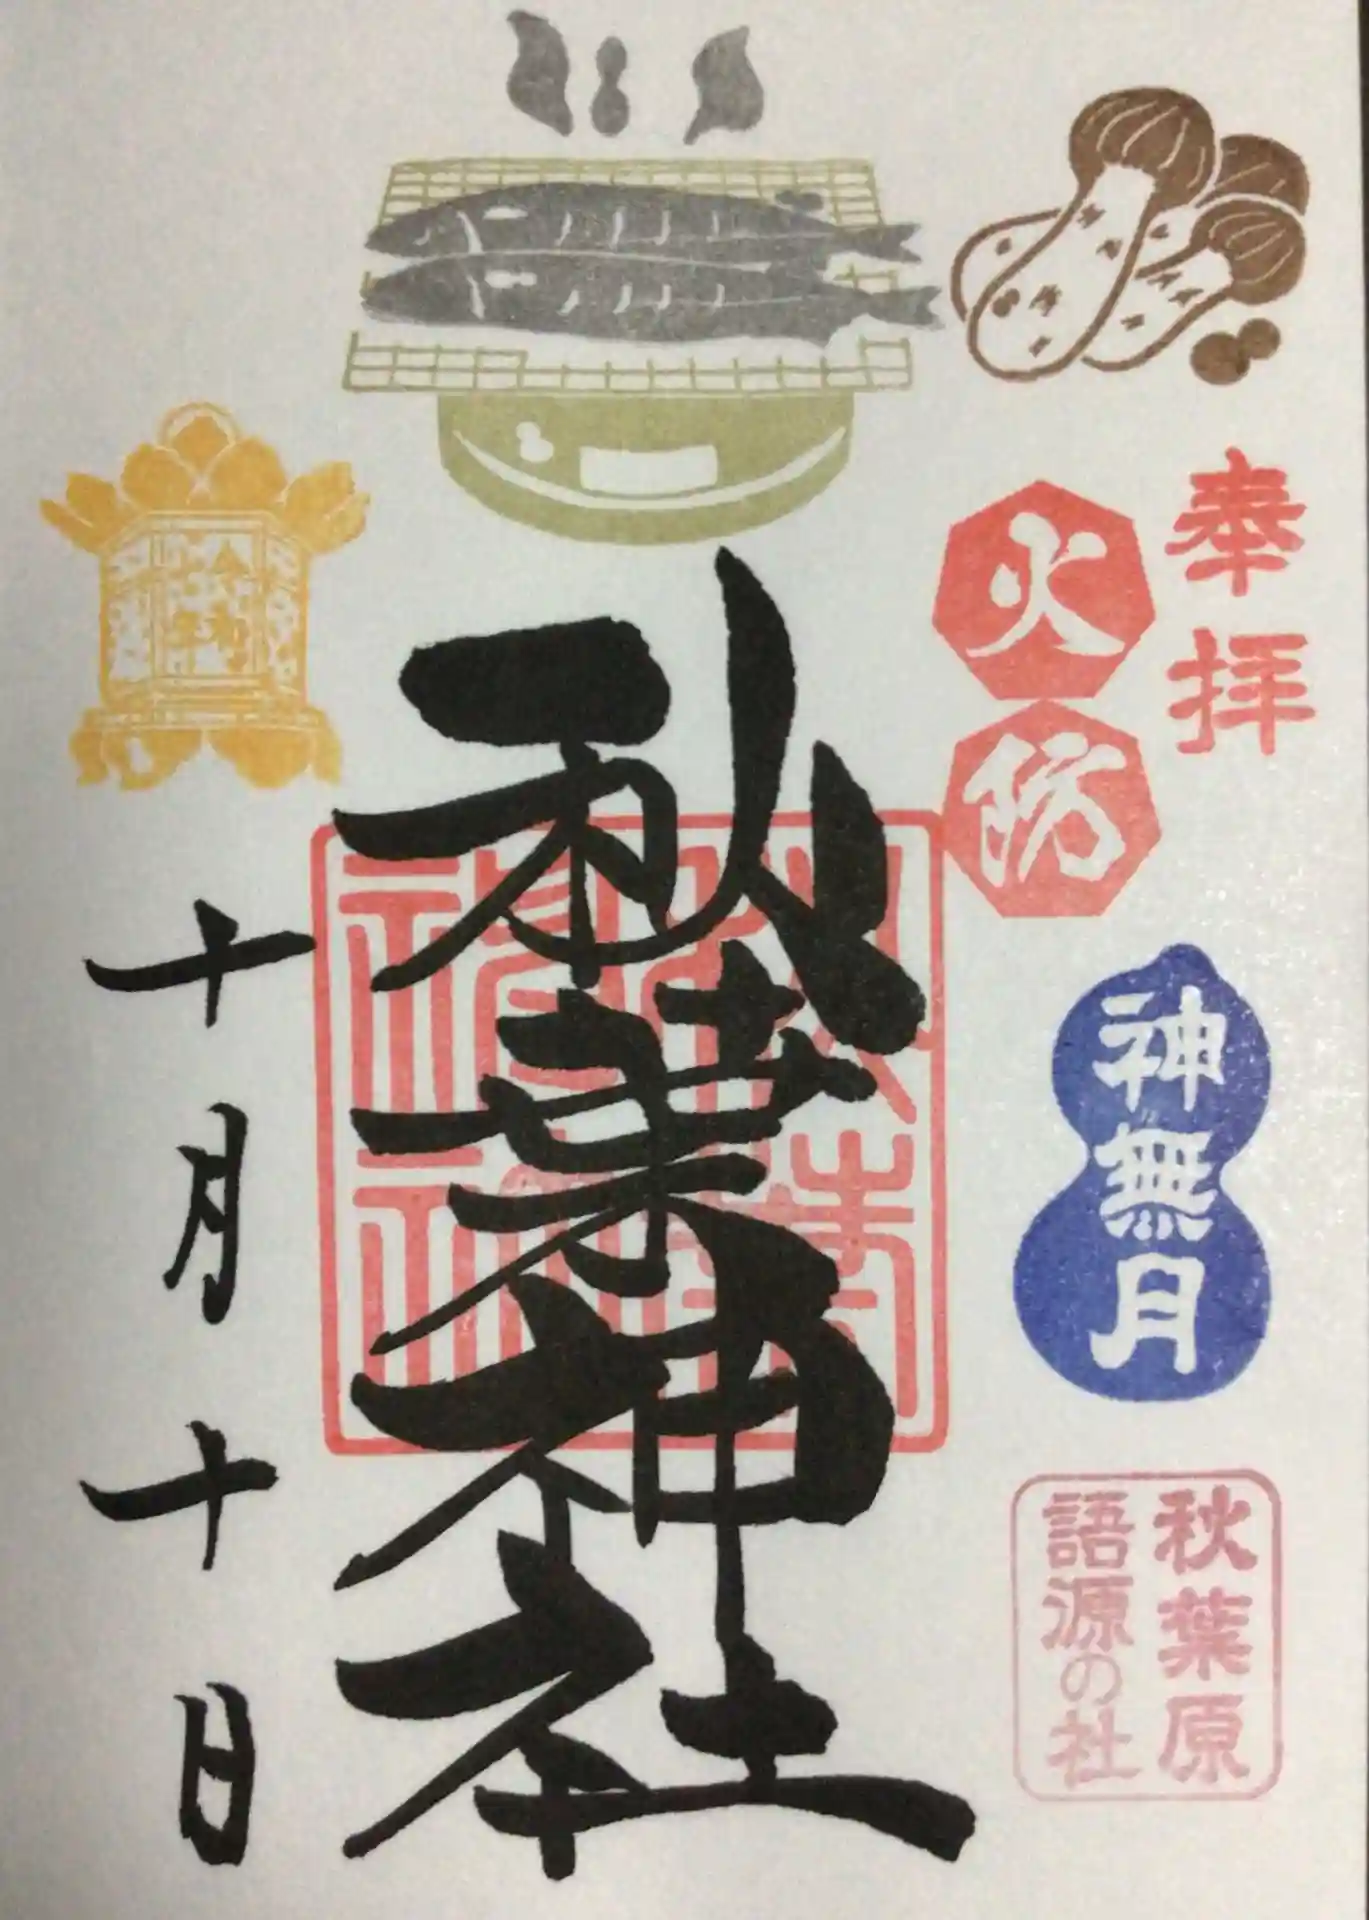 奉拝
火防
神無月
秋葉原
語源の社
秋葉神社
秋葉
神社
十月十日